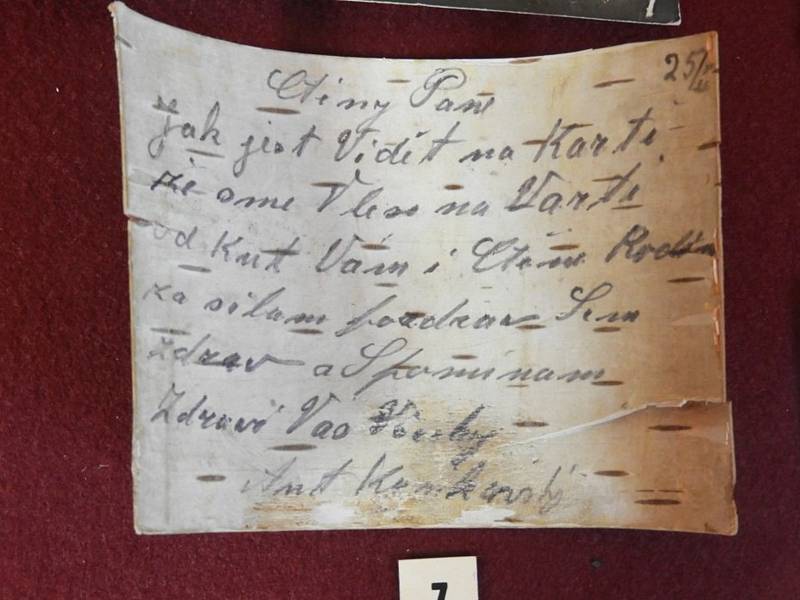 25/
Ctěny Pane
jak jest Vidět na Kartě
že sme V lese na Vartě
od kut Vám i Ctěne Rodině
za silam pozdrav Sem
zdrav a Spominam
Zdravi Vas
Ant
7